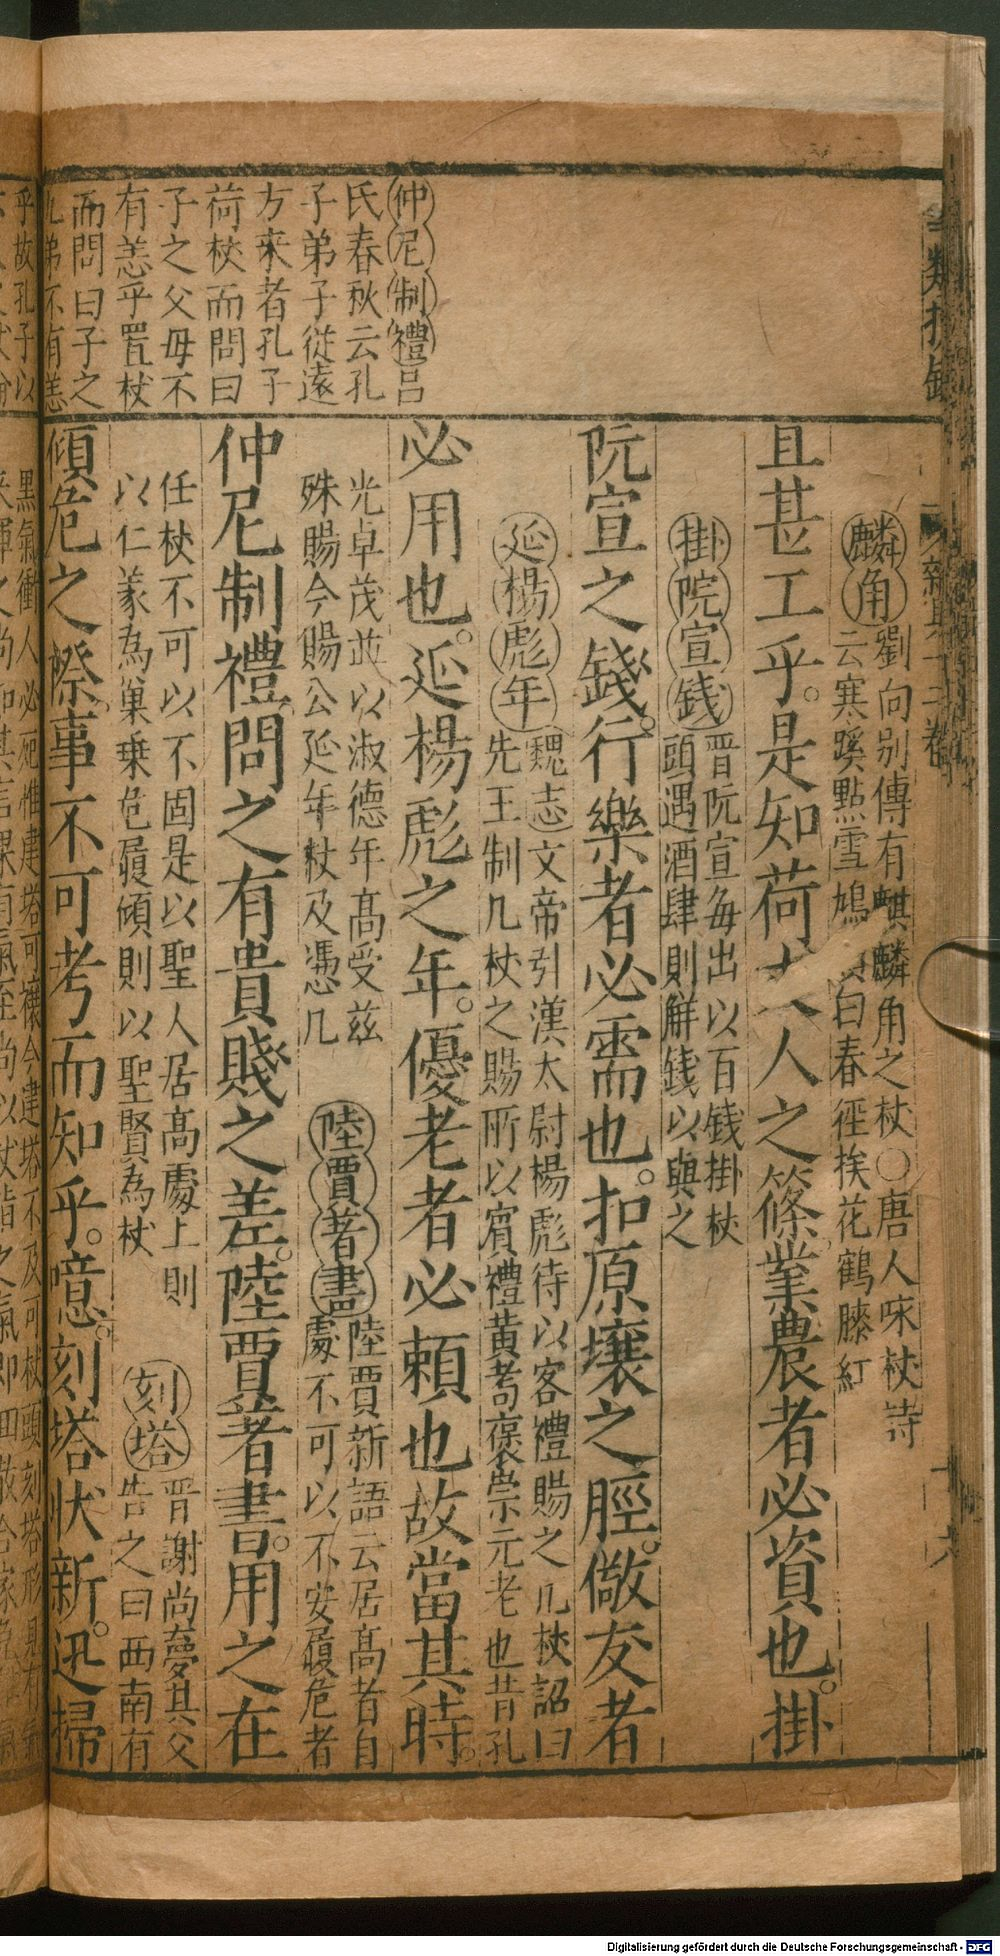 仲尼制禮呂
氏春秋云孔
子弟子從遠
方来者孔子
荷杖而問曰
子之父毋不
有恙乎置杖
而問曰子之
弟不有恙
乎故孔子以
麟角劉向别傳有麒麟角之杖○唐人咏杖诗
云寒蹊點雪鳩白春徑挨花鶴膝紅
且甚工乎。是知荷人之篠業農者必資也。掛
掛院宣錢晋阮宣每出以百錢掛杖
頭遇酒肆則觧錢以與之
阮宣之錢。行樂者必需也。扣原壤之脛。儆友者
延楊彪年魏志文帝引漢太尉楊彪待以客禮賜之几杖詔曰
先王制几杖之賜所以賓禮黄耉褒崇元老也昔孔
必用也。延楊彪之年。優老者必頼也故當其時。
光卓茂並以淑德年髙受兹
殊賜今賜公延年杖及馮几
陸賈著書陸賈新語云居髙者自
處不可以不安履危者
仲尼制禮問之有貴賤之差。陸賈著書。用之在
任杖不可以不固是以聖人居髙處上則
以仁義為巢乗危履傾則以聖賢為杖
刻塔晋謝尚夢其父
告之曰西南有
傾危之際。事不可考而知乎。噫。刻塔状新。迅掃
黒氣衝人必死惟建塔可禳今建塔不及可杖頭刻塔形見有氣